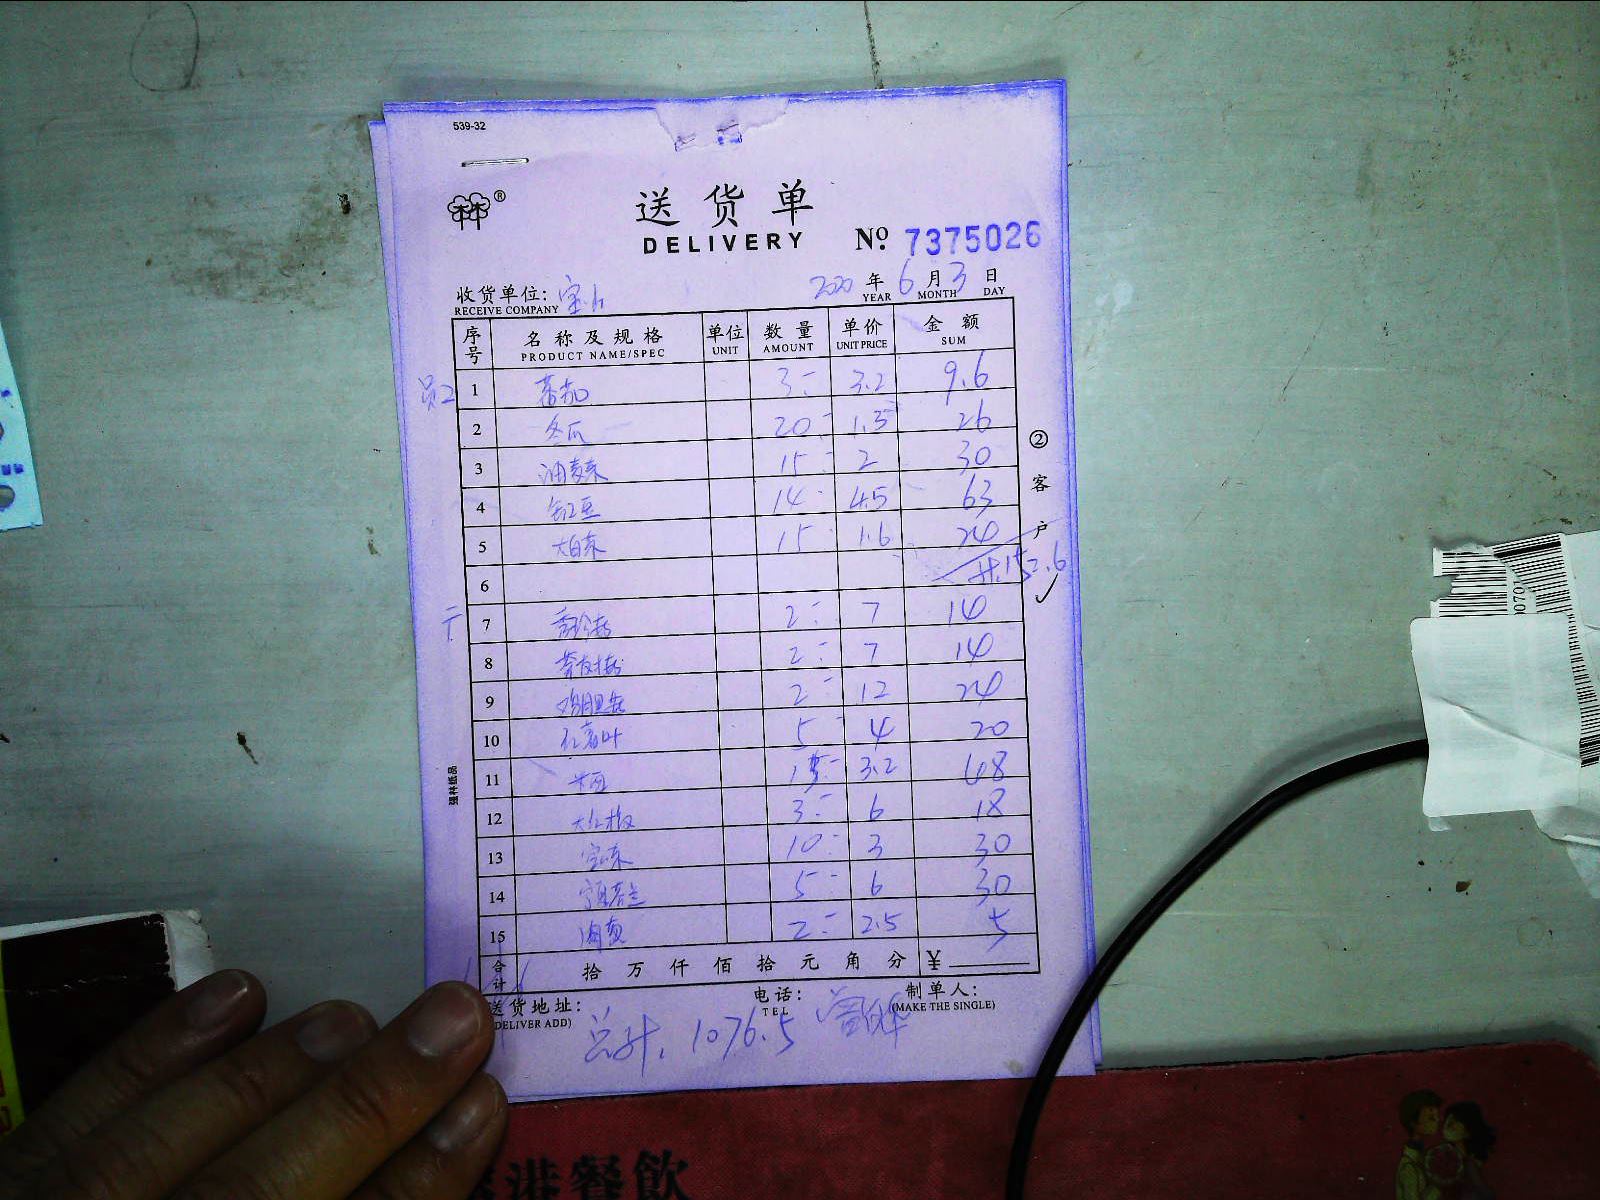 539-32
®
送货单
DELIVERY
Nº 7375026
收货单位:
RECEIVE COMPANY
2020 年 6 月 3 日
YEAR MONTH DAY
序号 名称及规格 单位 数量 单价 金额
PRODUCT NAME/SPEC UNIT AMOUNT UNIT PRICE SUM
员工 1 蕃茄 3 3.2 9.6
2 冬瓜 20 1.3 26
3 油麦菜 15 2 30
4 缸豆 14 4.5 63
5 大白菜 15 1.6 24
6 计.152.6
7 2 7 14
8 2 7 14
9 2 12 24
10 5 4 20
11 15 3.2 48
12 大红椒 3 6 18
13 10 3 30
14 5 6 30
15 2 2.5 5
合计 拾 万 仟 佰 拾 元 角 分 ¥
送货地址: 电话: 制单人:
DELIVER ADD) TEL (MAKE THE SINGLE)
总计. 1076.5
② 客户
强林纸品
港餐飲